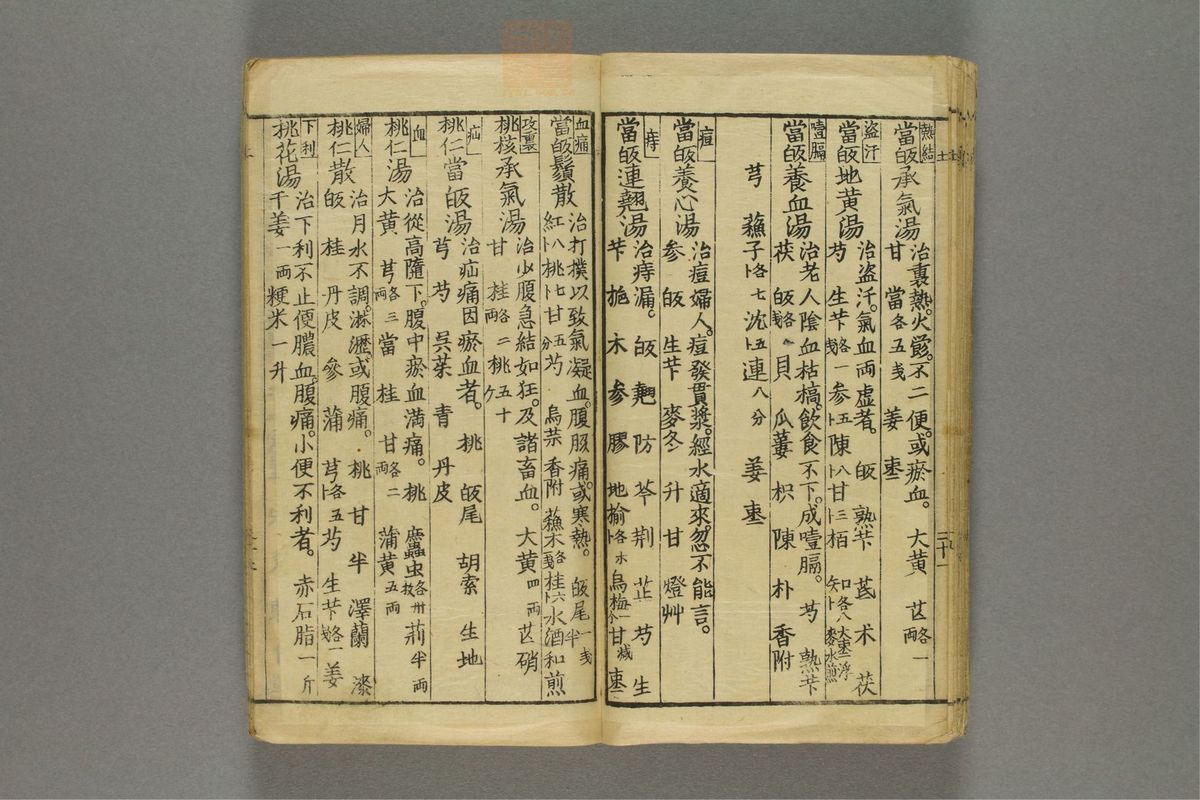 熱結
當皈承氣湯
治裏熱。火鬱。不二便。或瘀血。大黃 芒各一両
甘 當各五戔 姜 棗
盜汗
當皈地黃湯
治盜汗。氣血両虛者。 皈 熟芐 芪 朮 茯
芍 生芐各一戔 参五卜 陳八卜 甘三卜
噎膈
當皈養血湯
治老人陰血枯槁。飲食不下。成噎膈。 芍 熟芐
茯 皈各戔 貝 瓜蔞 枳 陳 朴 香附
芎 蘓子各七卜 沈五卜 連八分 姜 棗
痘
當皈養心湯
治痘婦人。痘發貫漿。經水適來。忽不能言。
参 皈 生芐 麥冬 升 甘 燈艸
痔
當皈連翹湯
治痔漏。 皈 翹 防 芩 荆 芷 芍 生
芐 梔 木 参 膠 地榆各卜 烏梅一个 甘减 棗
血痛
當皈鬚散
治打撲以致氣凝血。腹䐜痛。或寒熱。 皈尾一戔半
紅八卜 桃七卜 甘五分 芍 烏茱 香附 蘓木各戔 桂六卜 水酒和煎
攻裏
桃核承氣湯
治少腹急結如狂。及諸畜血。 大黃四両 芒硝
甘 桂各二両 桃五十ケ
疝
桃仁當皈湯
治疝痛因瘀血者。 桃 皈尾 胡索 生地
芎 芍 呉茱 青 丹皮
血
桃仁湯
治從高隨下。腹中瘀血満痛。 桃 䗪虫各卅枚 荊半両
大黃 芎各三両 當 桂 甘各二両 蒲黃五両
婦人
桃仁散
治月水不調。淋瀝。或腹痛。 桃 甘 半 澤蘭 漆
皈 桂 丹皮 參 蒲 芎各五卜 芍 生芐各一戔 姜
下利
桃花湯
治下利不止便膿血。腹痛。小便不利者。 赤石脂一斤
干姜一両 粳米一升